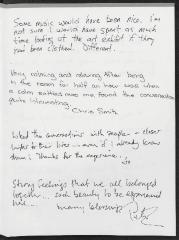 Some music would have been nice. I'm
not sure I would have spent as much
time looking at the art exhibit if they
had been clothed. Different...
Very calming and relaxing. After being
in the room for half an hour was when
a calm settled over me. Found the conversation
quite interesting.
Chris Smith
Liked the conversations with people - closer
to their lives - even if I already know
them! Thanks for the experience.
Strong feelings that we all belonged
together... such beauty to be experienced
many blessings